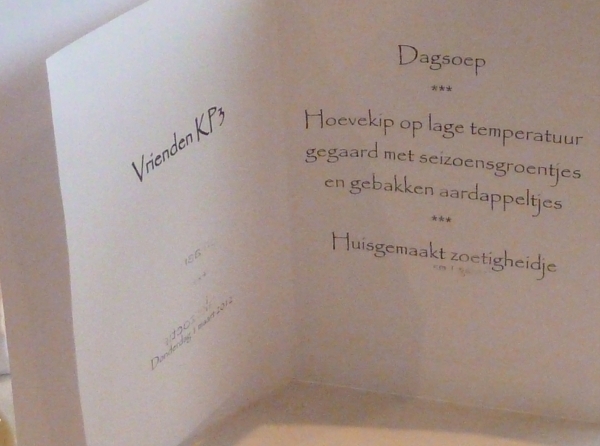 Vrienden KP3
Donderdag 1 maart 2012
Dagsoep
***
Hoevekip op lage temperatuur
gegaard met seizoensgroentjes
en gebakken aardappeltjes
***
Huisgemaakt zoetigheidje